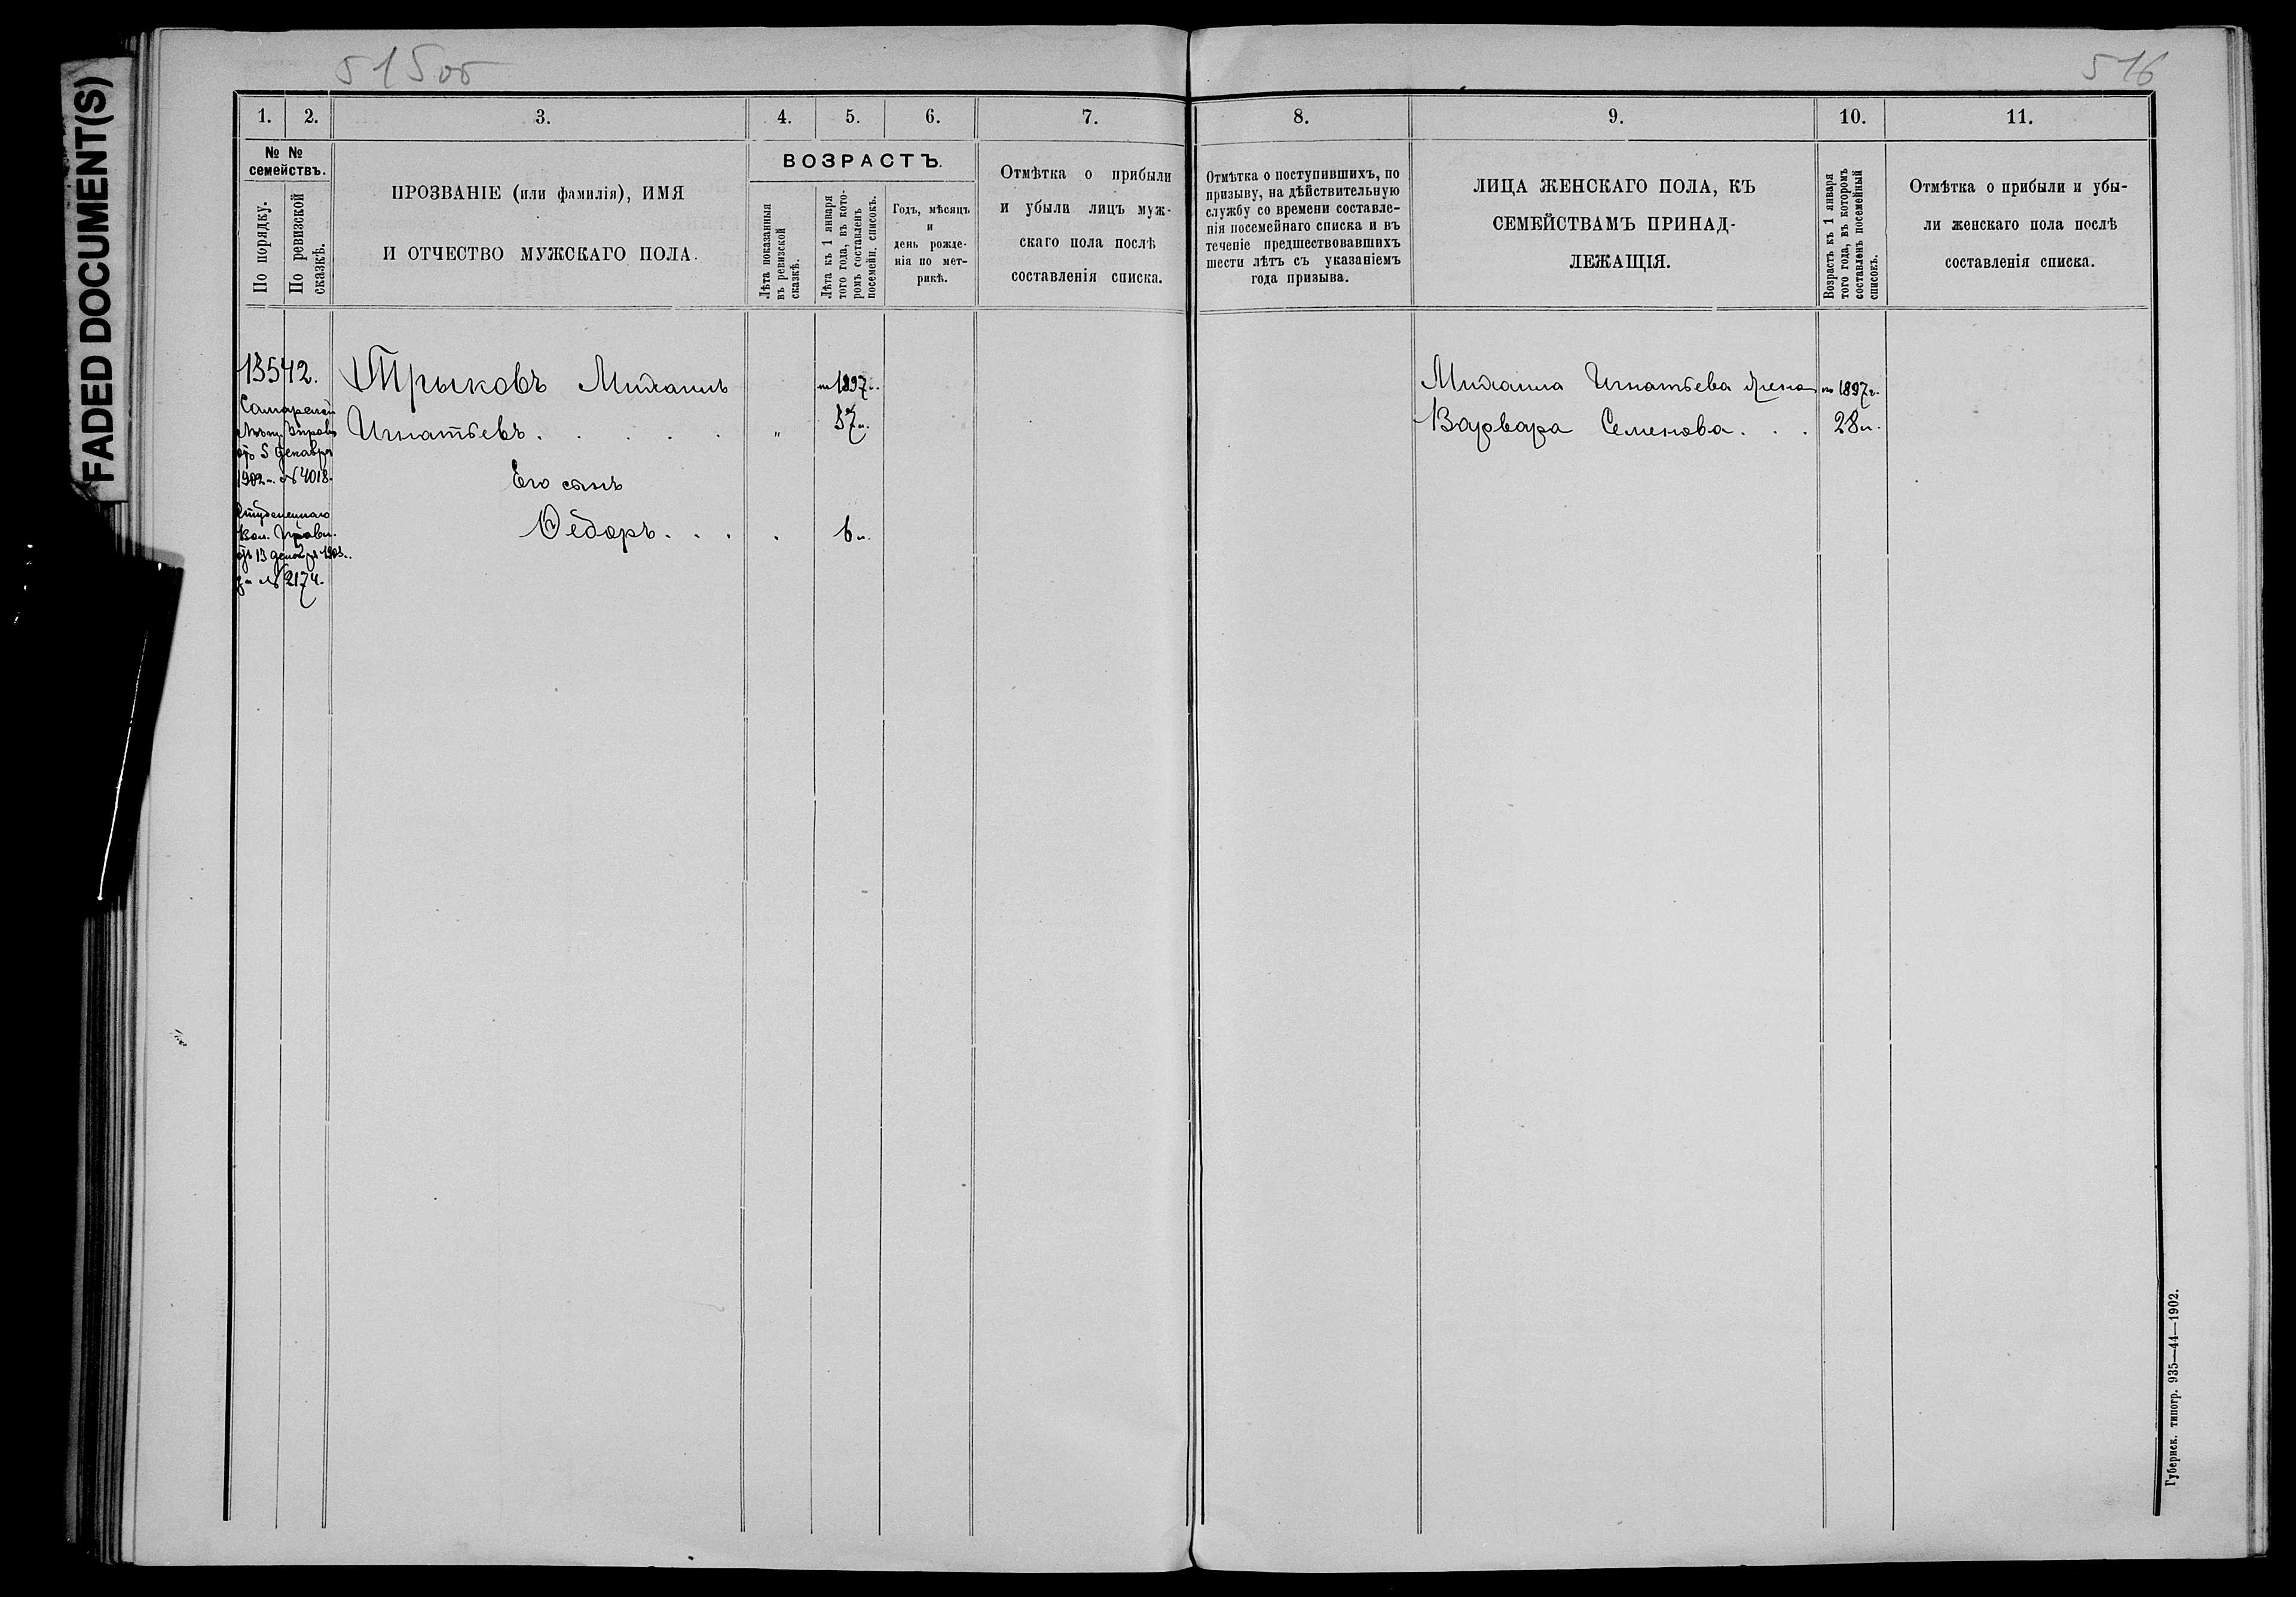 FADED DOCUMENT(S)
515об
516
1. 2. 3. 4. 5. 6. 7. 8. 9. 10. 11.
№ №
семействъ.
По порядку.
По ревизской
сказкѣ.
ПРОЗВАНІЕ (или фамилія), ИМЯ
И ОТЧЕСТВО МУЖСКАГО ПОЛА.
ВОЗРАСТЪ.
Лѣта показанныя
въ ревизской
сказкѣ.
Лѣта къ 1 января
того года, въ кото-
ромъ составленъ
посемейн. списокъ.
Годъ, мѣсяцъ
и
день рожде-
нія по мет-
рикѣ.
Отмѣтка о прибыли
и убыли лицъ муж-
скаго пола послѣ
составленія списка.
Отмѣтка о поступившихъ, по
призыву, на дѣйствительную
службу со времени составле-
нія посемейнаго списка и въ
теченіе предшествовавшихъ
шести лѣтъ съ указаніемъ
года призыва.
ЛИЦА ЖЕНСКАГО ПОЛА, КЪ
СЕМЕЙСТВАМЪ ПРИНАД-
ЛЕЖАЩІЯ.
Возрастъ къ 1 января
того года, въ которомъ
составленъ посемейный
списокъ.
Отмѣтка о прибыли и убы-
ли женскаго пола послѣ
составленія списка.
13542.
Самарской
Мѣщ. Управы
отъ 5 декабря
1902 г. № 4018.
Вол. Правл.
отъ 13 декабря 1903 г.
за № 2174.
Трыковъ Михаилъ
Игнатьевъ. . . . . „
на 1897 г.
37 л.
Его сынъ
Ѳедоръ. . . . 6 л.
Михаила Игнатьева жена
Варвара Семенова. . .
на 1897 г.
28 л.
Губернск. типогр. 935—44—1902.